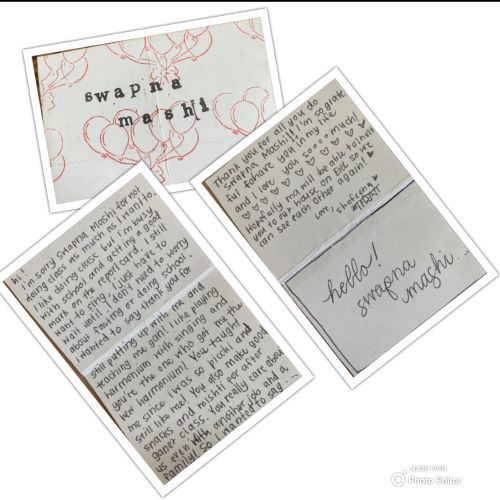 swapna
mashi
hi!
I'm sory Swapna Mashi for not
doing class as much as I want to.
I like doing class but I'm busy
with school and getting a good
mark on the report card. I still
want to sing, I just have to
wait until I don't need to worry
about fasting or doing school.
I wanted to say thank you for
still putting up with me and
teaching me gan! I like playing
harmonium with singing and
you're the one who got me the
new harmonium! You taught
me since I was so picchi and
still like me! You also make good
snacks and mishti for after
ganer class. You really care about
us even with another job and a
family! So I wanted to say...
Thank you for all you do
Swapna Mashi!! I'm so grate
ful to have you in my life
and I love you soooo much!
Hopefully ma will be able to invite
you to our house on Eid so we
can see each other again!
Love,
hello!
swapna
mashi...
MADE WITH
Photo Editor